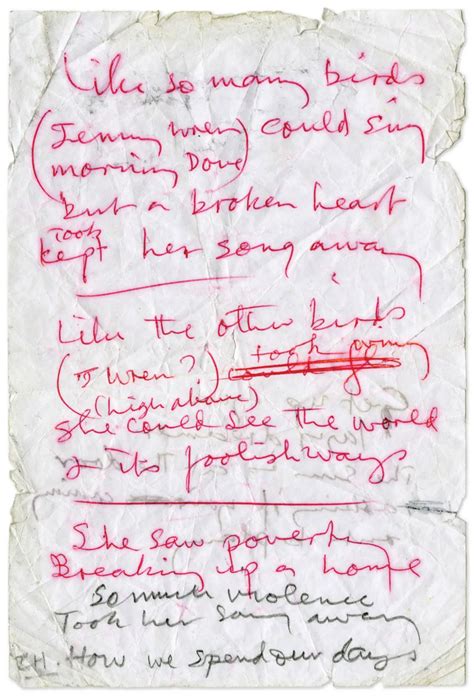 Like so many birds
(Jenny Wren) could sing
morning Dove
but a broken heart
Took
kept her song away
Like the other birds
took wing
(Wren?)
(high above)
She could see the world
& its foolish ways
She saw poverty
Breaking up a home
So much violence
Took her song away
How we spend our days